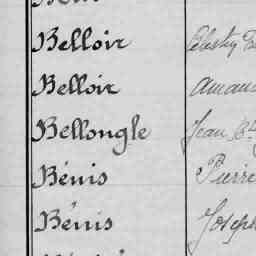 Belloir
Belloir Amand
Bellongle Jean Bte
Bénis Pierre
Bénis Joseph